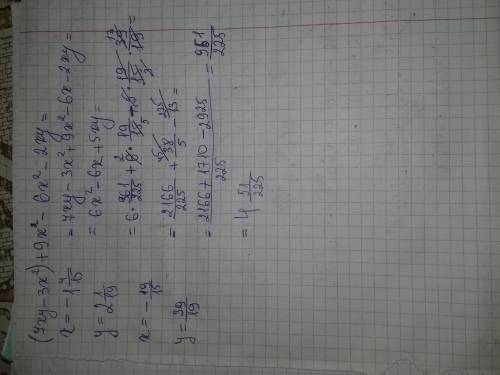 (7xy-3x²)+9x²-6x²-2xy=
x=-1 4/15
= 7xy-3x²+9x²-6x-2xy=
y=2 1/19
=6x²-6x+5xy=
x=-19/15
=6·361/225+6·19/15 · 19/15 · 39/19=
y=39/19
=2166/225+38/5- =
=2166+1710-2925/225 = 951/225
=4 51/225